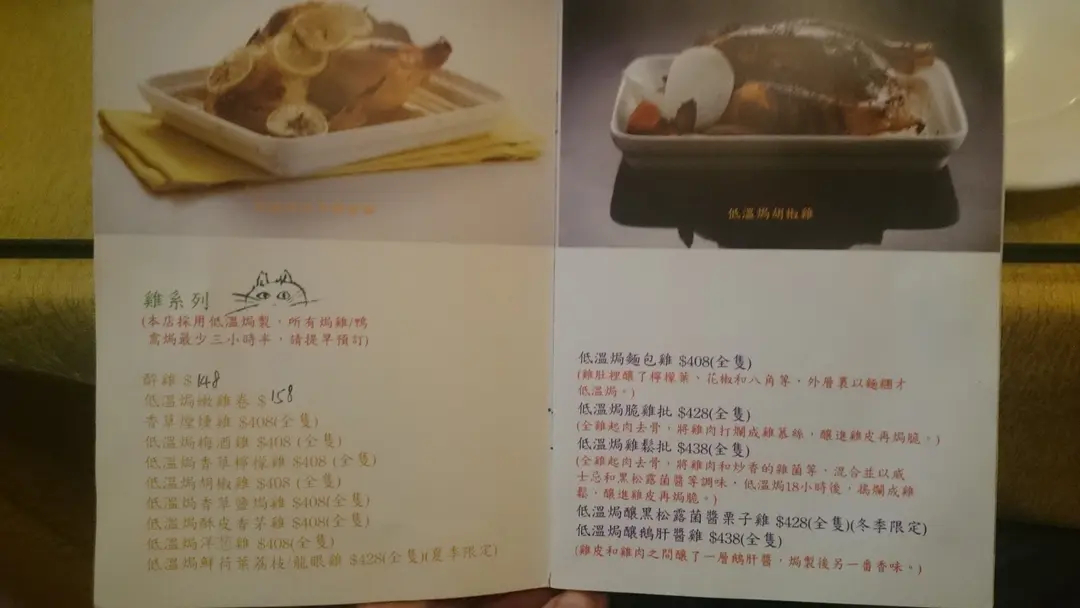 低溫焗胡椒雞
雞系列
(本店採用低溫焗製，所有焗雞/鴨
需焗最少三小時半，請提早預訂)
醉雞 $ 148
低溫焗嫩雞卷 $ 158
香草煙燻雞 $408(全隻)
低溫焗梅酒雞 $408 (全隻)
低溫焗香草檸檬雞 $408 (全隻)
低溫焗胡椒雞 $408 (全隻)
低溫焗香草鹽焗雞 $408(全隻)
低溫焗酥皮香茅雞 $408(全隻)
低溫焗洋葱雞 $408(全隻)
低溫焗鮮荷葉荔枝/龍眼雞 $428(全隻)(夏季限定)
低溫焗麵包雞 $408(全隻)
(雞肚裡釀了檸檬葉、花椒和八角等，外層裹以麵糰才
低溫焗。)
低溫焗脆雞批 $428(全隻)
(全雞起肉去骨，將雞肉打爛成雞慕絲，釀進雞皮再焗脆。)
低溫焗雞鬆批 $438(全隻)
(全雞起肉去骨，將雞肉和炒香的雞菌等，混合並以威
士忌和黑松露菌醬等調味，低溫焗18小時後，搗爛成雞
鬆，釀進雞皮再焗脆。)
低溫焗釀黑松露菌醬栗子雞 $428(全隻)(冬季限定)
低溫焗釀鵝肝醬雞 $438(全隻)
(雞皮和雞肉之間釀了一層鵝肝醬，焗製後另一番香味。)